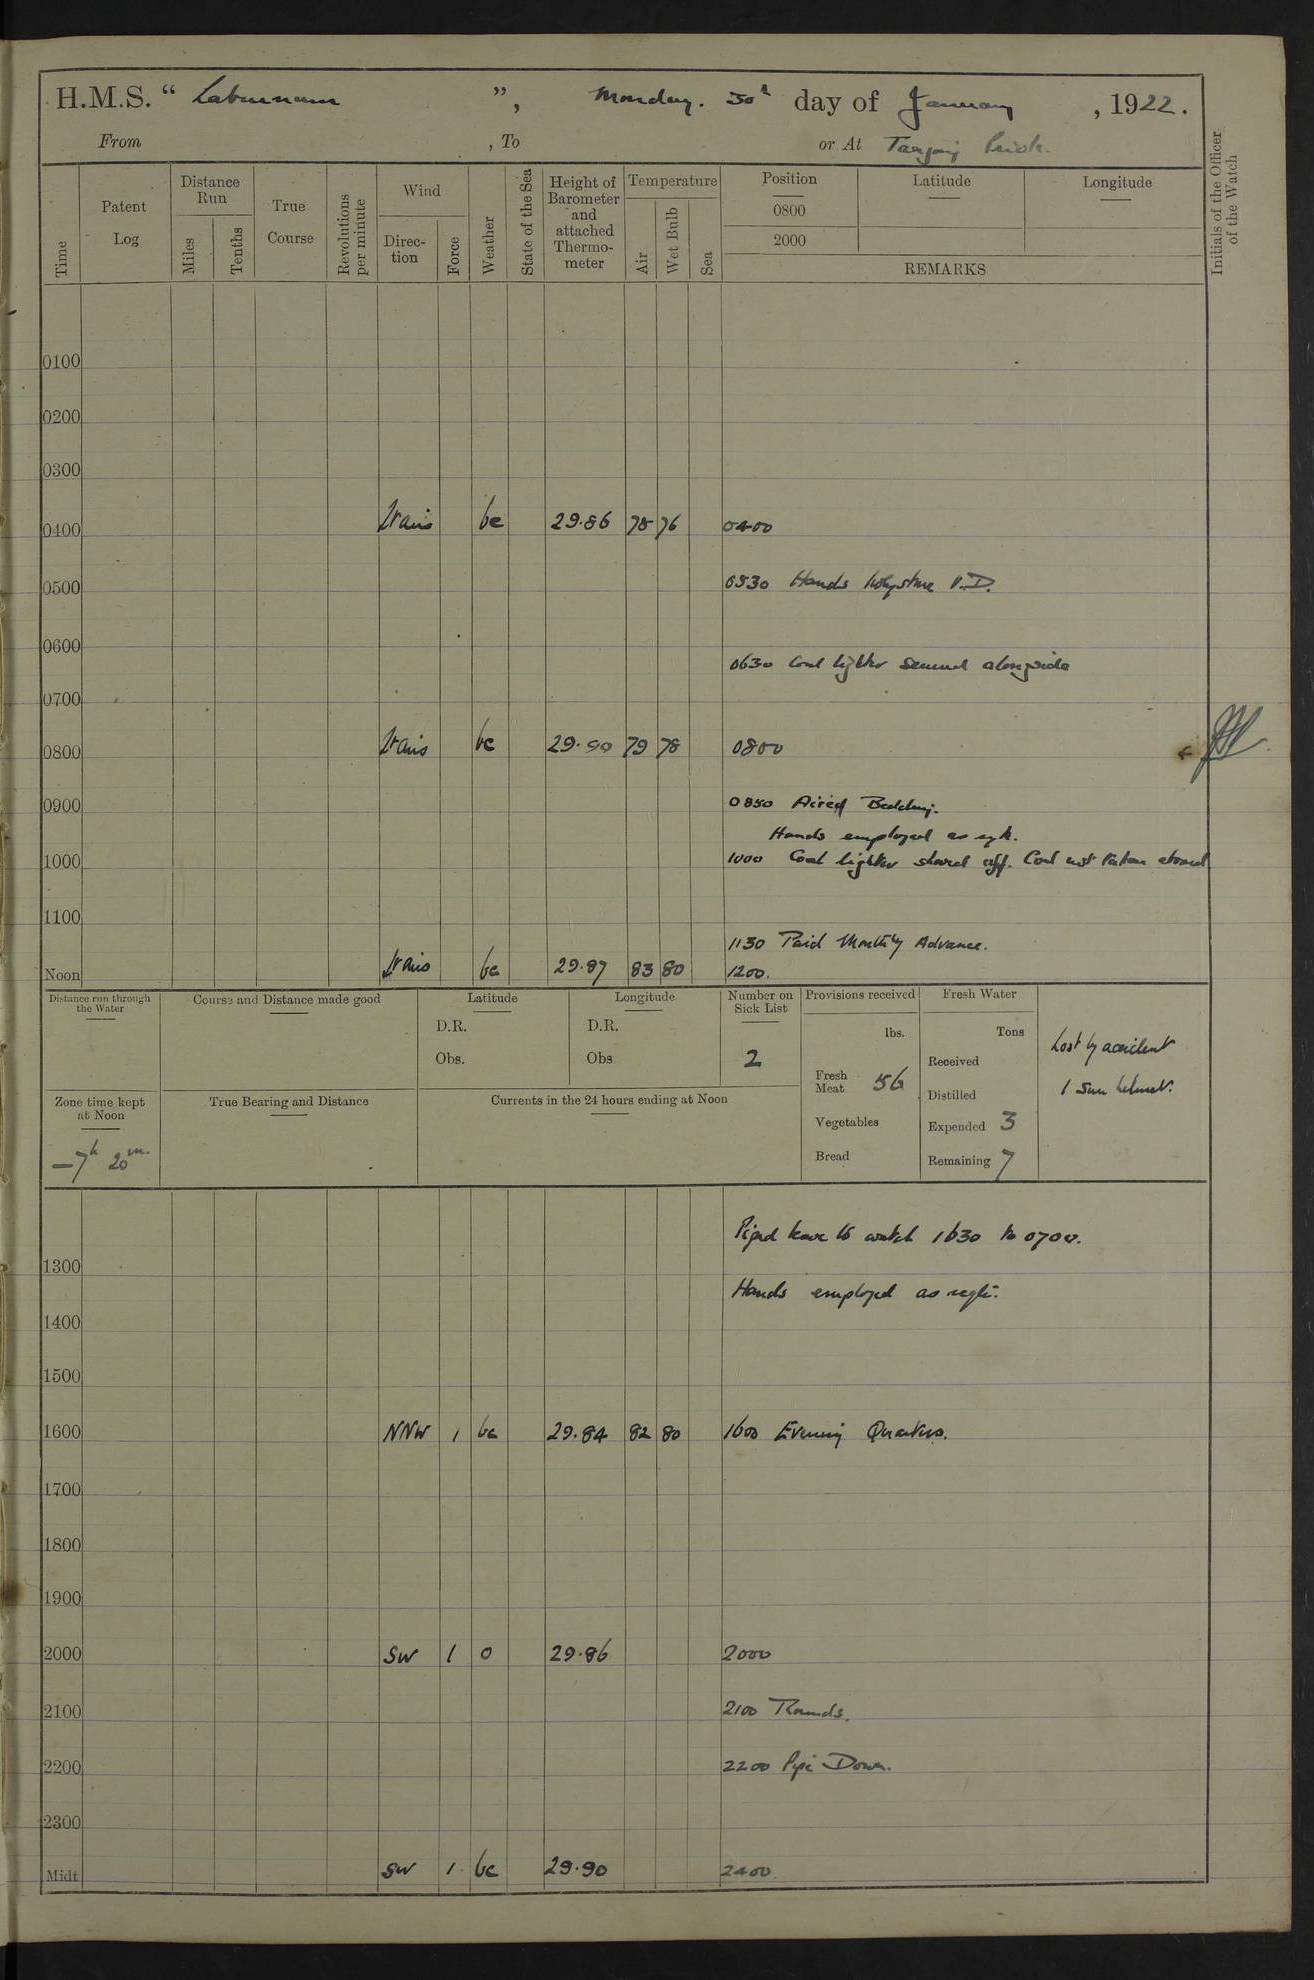 H.M.S. “ Laburnum ”, Monday. 30th day of January , 1922.
From , To or At Tanjong Priok.
Time
Patent Log
Distance Run
Miles
Tenths
True Course
Revolutions per minute
Wind
Direc- tion
Force
Weather
State of the Sea
Height of Barometer and attached Thermo- meter
Temperature
Air
Wet Bulb
Sea
Position
0800
2000
Latitude
Longitude
REMARKS
Initials of the Officer of the Watch
0100
0200
0300
0400 Vario bc 29.86 78 76 0400
0500 0530 Hands holystone U.D.
0600
0630 Coal lighter secured alongside
0700
0800 Vario bc 29.90 79 78 0800
0900 0850 Aired Bedding.
Hands employed as reqte.
1000 1000 Coal lighter shoved off. Coal not taken aboard
1100
1130 Paid Monthly Advance.
Noon Vario bc 29.87 83 80 1200.
Distance run through the Water
Course and Distance made good
Latitude
D.R.
Obs.
Longitude
D.R.
Obs
Number on Sick List
2
Provisions received
lbs.
Fresh Meat 56
Vegetables
Bread
Fresh Water
Tons
Received
Distilled
Expended 3
Remaining 7
Lost by accident
1 Sun helmet.
Zone time kept at Noon
—7h 20m.
True Bearing and Distance
Currents in the 24 hours ending at Noon
Piped leave to watch 1630 to 0700.
1300
Hands employed as reqte.
1400
1500
1600 NNW 1 bc 29.84 82 80 1600 Evening Quarters.
1700
1800
1900
2000 SW 1 o 29.86 2000
2100 2100 Rounds.
2200 2200 Pipe Down.
2300
Midt SW 1 bc 29.90 2400